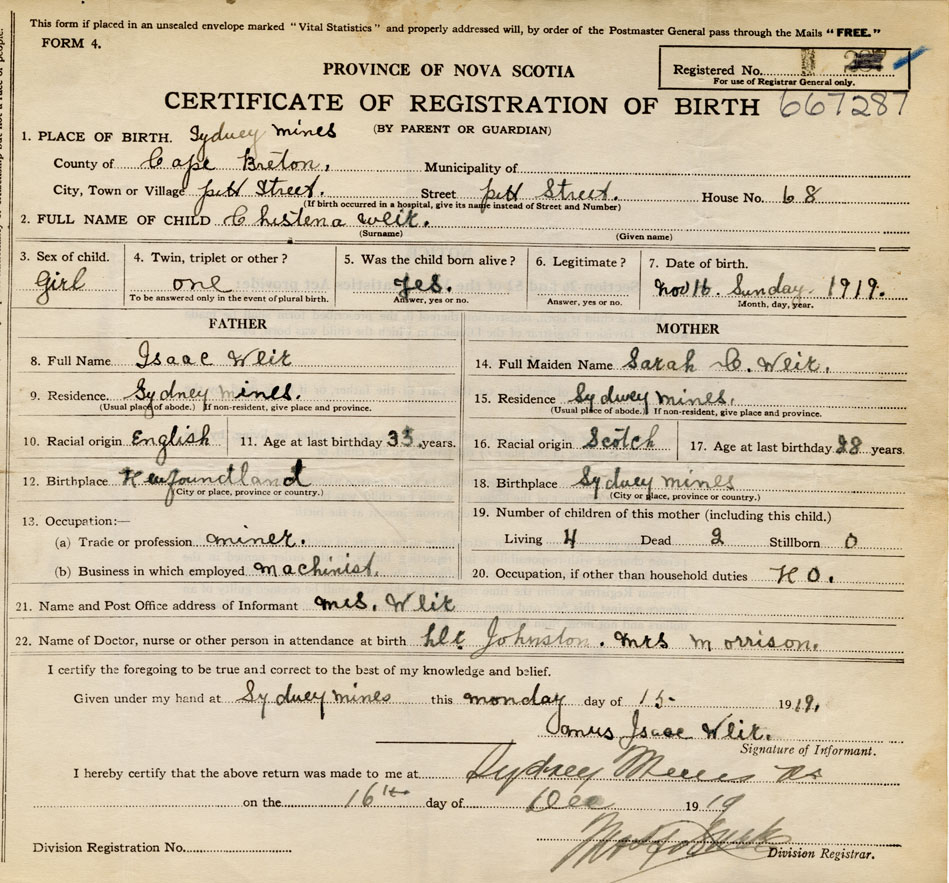 This form if placed in an unsealed envelope marked "Vital Statistics" and properly addressed will, by order of the Postmaster General pass through the Mails "FREE."
FORM 4.
Registered No.
For use of Registrar General only.
PROVINCE OF NOVA SCOTIA
CERTIFICATE OF REGISTRATION OF BIRTH 667287
(BY PARENT OR GUARDIAN)
1. PLACE OF BIRTH. Sydney mines
County of Cape Breton. Municipality of
City, Town or Village pitt Street. Street pitt Street. House No. 68
(If birth occurred in a hospital, give its name instead of Street and Number)
2. FULL NAME OF CHILD Christena Weir.
(Surname) (Given name)
3. Sex of child. 4. Twin, triplet or other? 5. Was the child born alive? 6. Legitimate? 7. Date of birth.
Girl one yes. Nov 16. Sunday. 1919.
To be answered only in the event of plural birth. Answer, yes or no. Answer, yes or no. Month, day, year.
FATHER MOTHER
8. Full Name Isaac Weir 14. Full Maiden Name Sarah C. Weir.
9. Residence. Sydney mines. 15. Residence Sydney mines.
(Usual place of abode.) If non-resident, give place and province. (Usual place of abode.) If non-resident, give place and province.
10. Racial origin English 11. Age at last birthday 33 years. 16. Racial origin Scotch 17. Age at last birthday 28 years.
12. Birthplace Newfoundland 18. Birthplace Sydney mines
(City or place, province or country.) (City or place, province or country.)
13. Occupation:— 19. Number of children of this mother (including this child.)
(a) Trade or profession miner. Living 4 Dead 2 Stillborn 0
(b) Business in which employed machinist. 20. Occupation, if other than household duties H O.
21. Name and Post Office address of Informant mrs. Weir
22. Name of Doctor, nurse or other person in attendance at birth Johnston. mrs morrison.
I certify the foregoing to be true and correct to the best of my knowledge and belief.
Given under my hand at Sydney mines this monday day of 15 1919.
James Isaac Weir.
Signature of Informant.
I hereby certify that the above return was made to me at Sydney Mines NS
on the 16th day of Dec 1919
Division Registration No. Division Registrar.